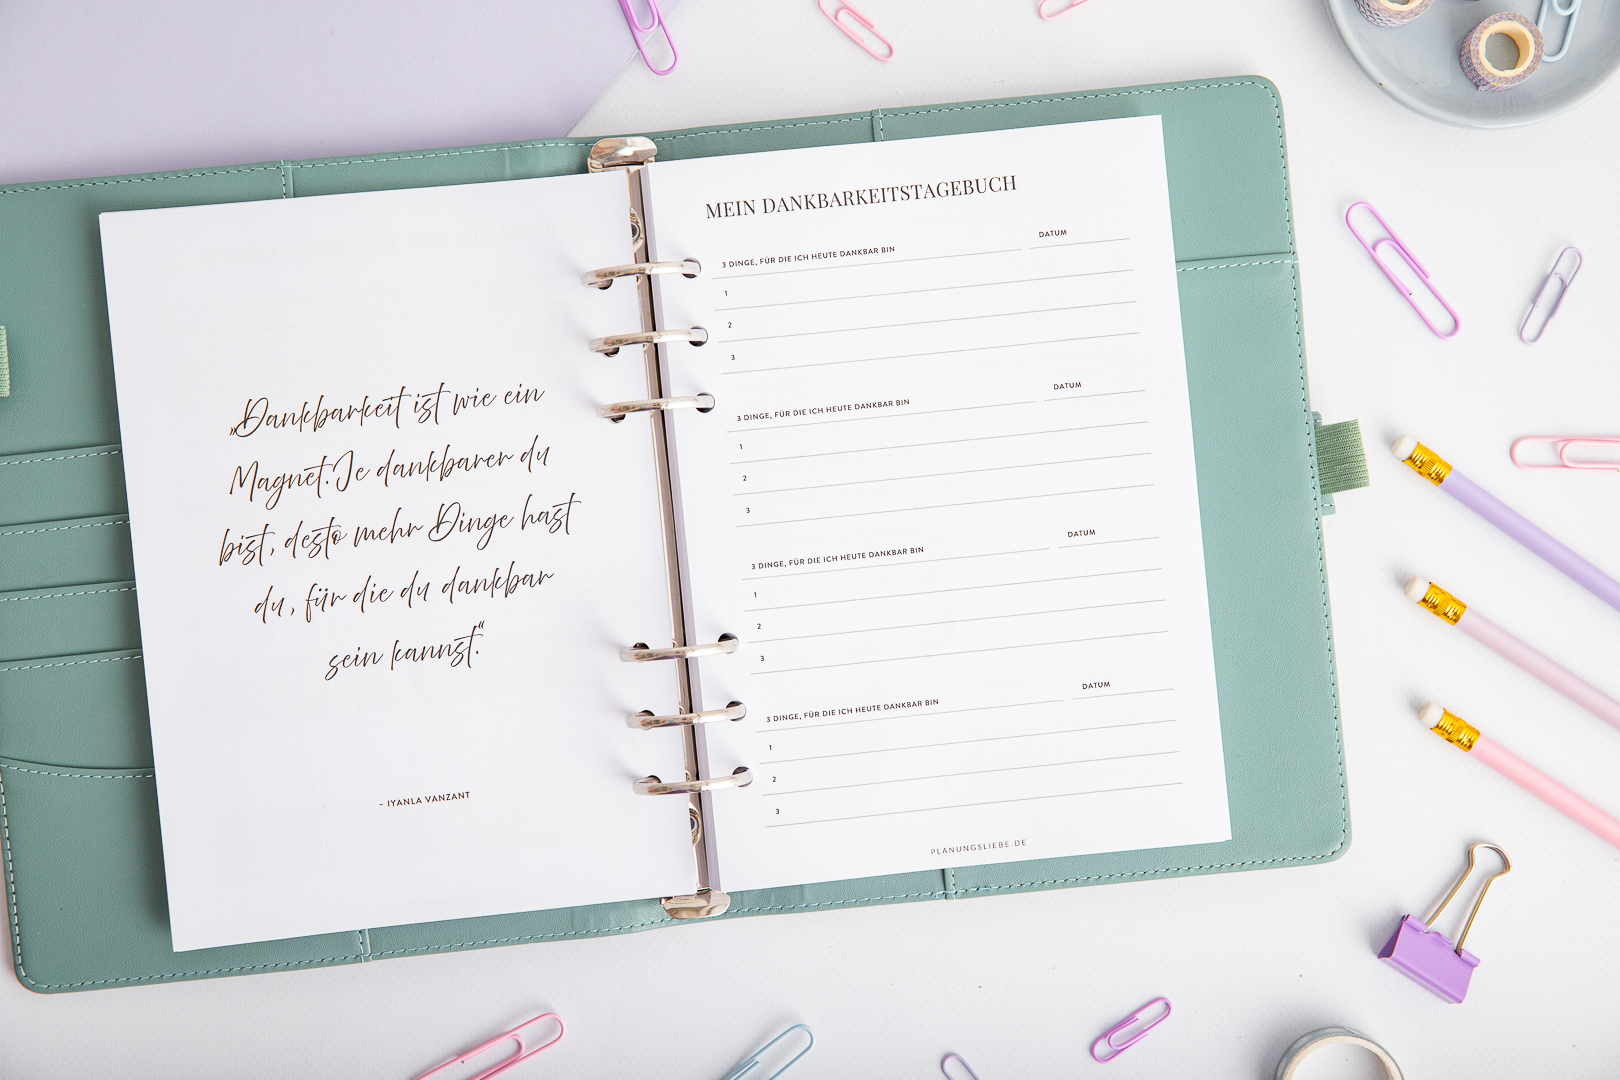 „Dankbarkeit ist wie ein
Magnet. Je dankbarer du
bist, desto mehr Dinge hast
du, für die du dankbar
sein kannst.“
– IYANLA VANZANT
MEIN DANKBARKEITSTAGEBUCH
3 DINGE, FÜR DIE ICH HEUTE DANKBAR BIN DATUM
1
2
3
3 DINGE, FÜR DIE ICH HEUTE DANKBAR BIN DATUM
1
2
3
3 DINGE, FÜR DIE ICH HEUTE DANKBAR BIN DATUM
1
2
3
3 DINGE, FÜR DIE ICH HEUTE DANKBAR BIN DATUM
1
2
3
PLANUNGSLIEBE.DE